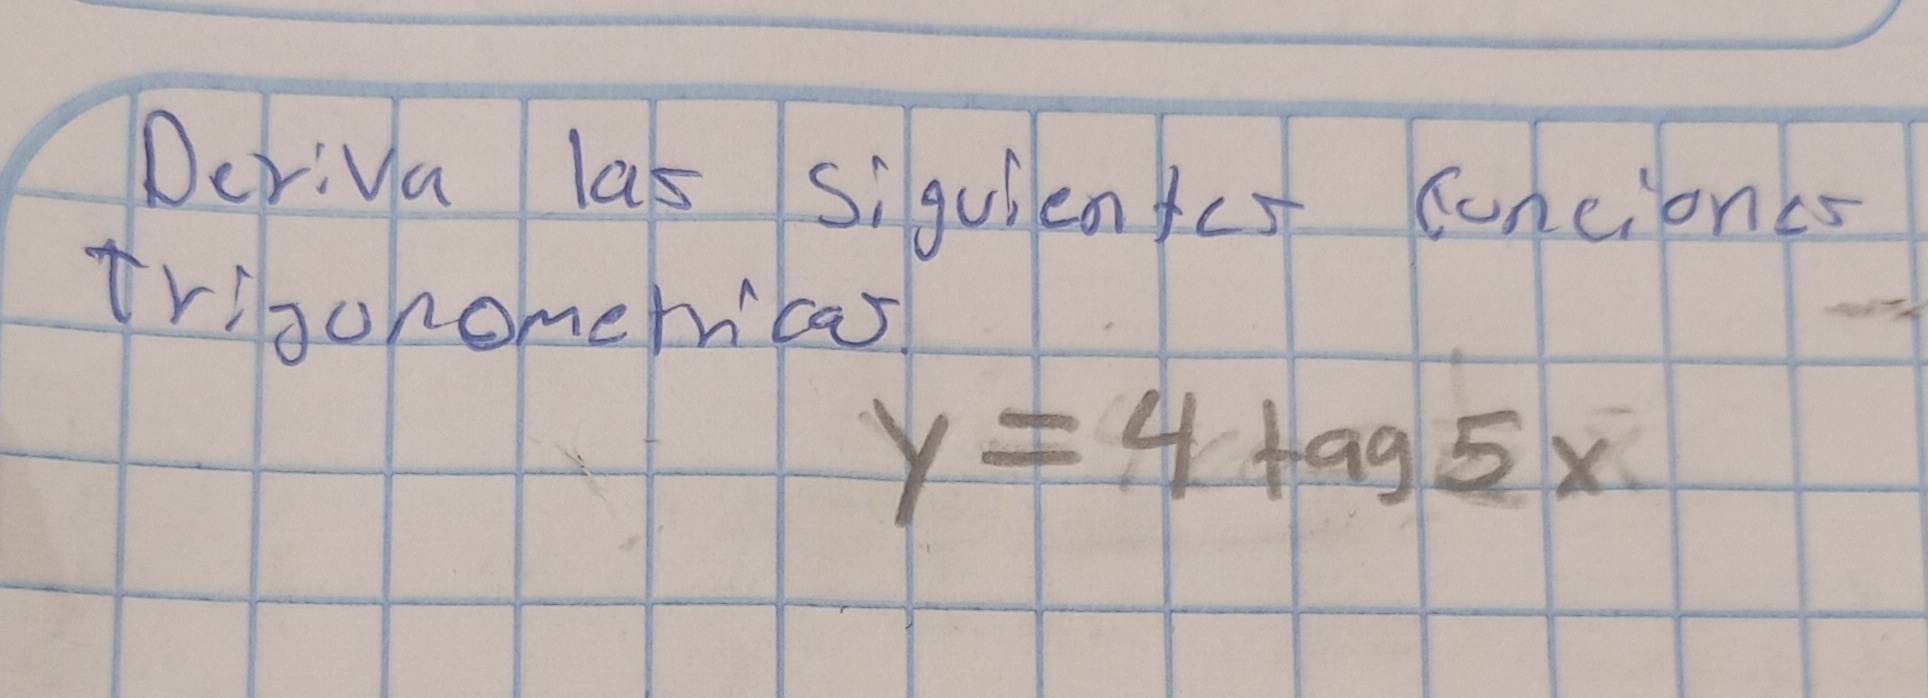 Deriva las siguientes funciones
trigonometricas.
y = 4 tag 5x